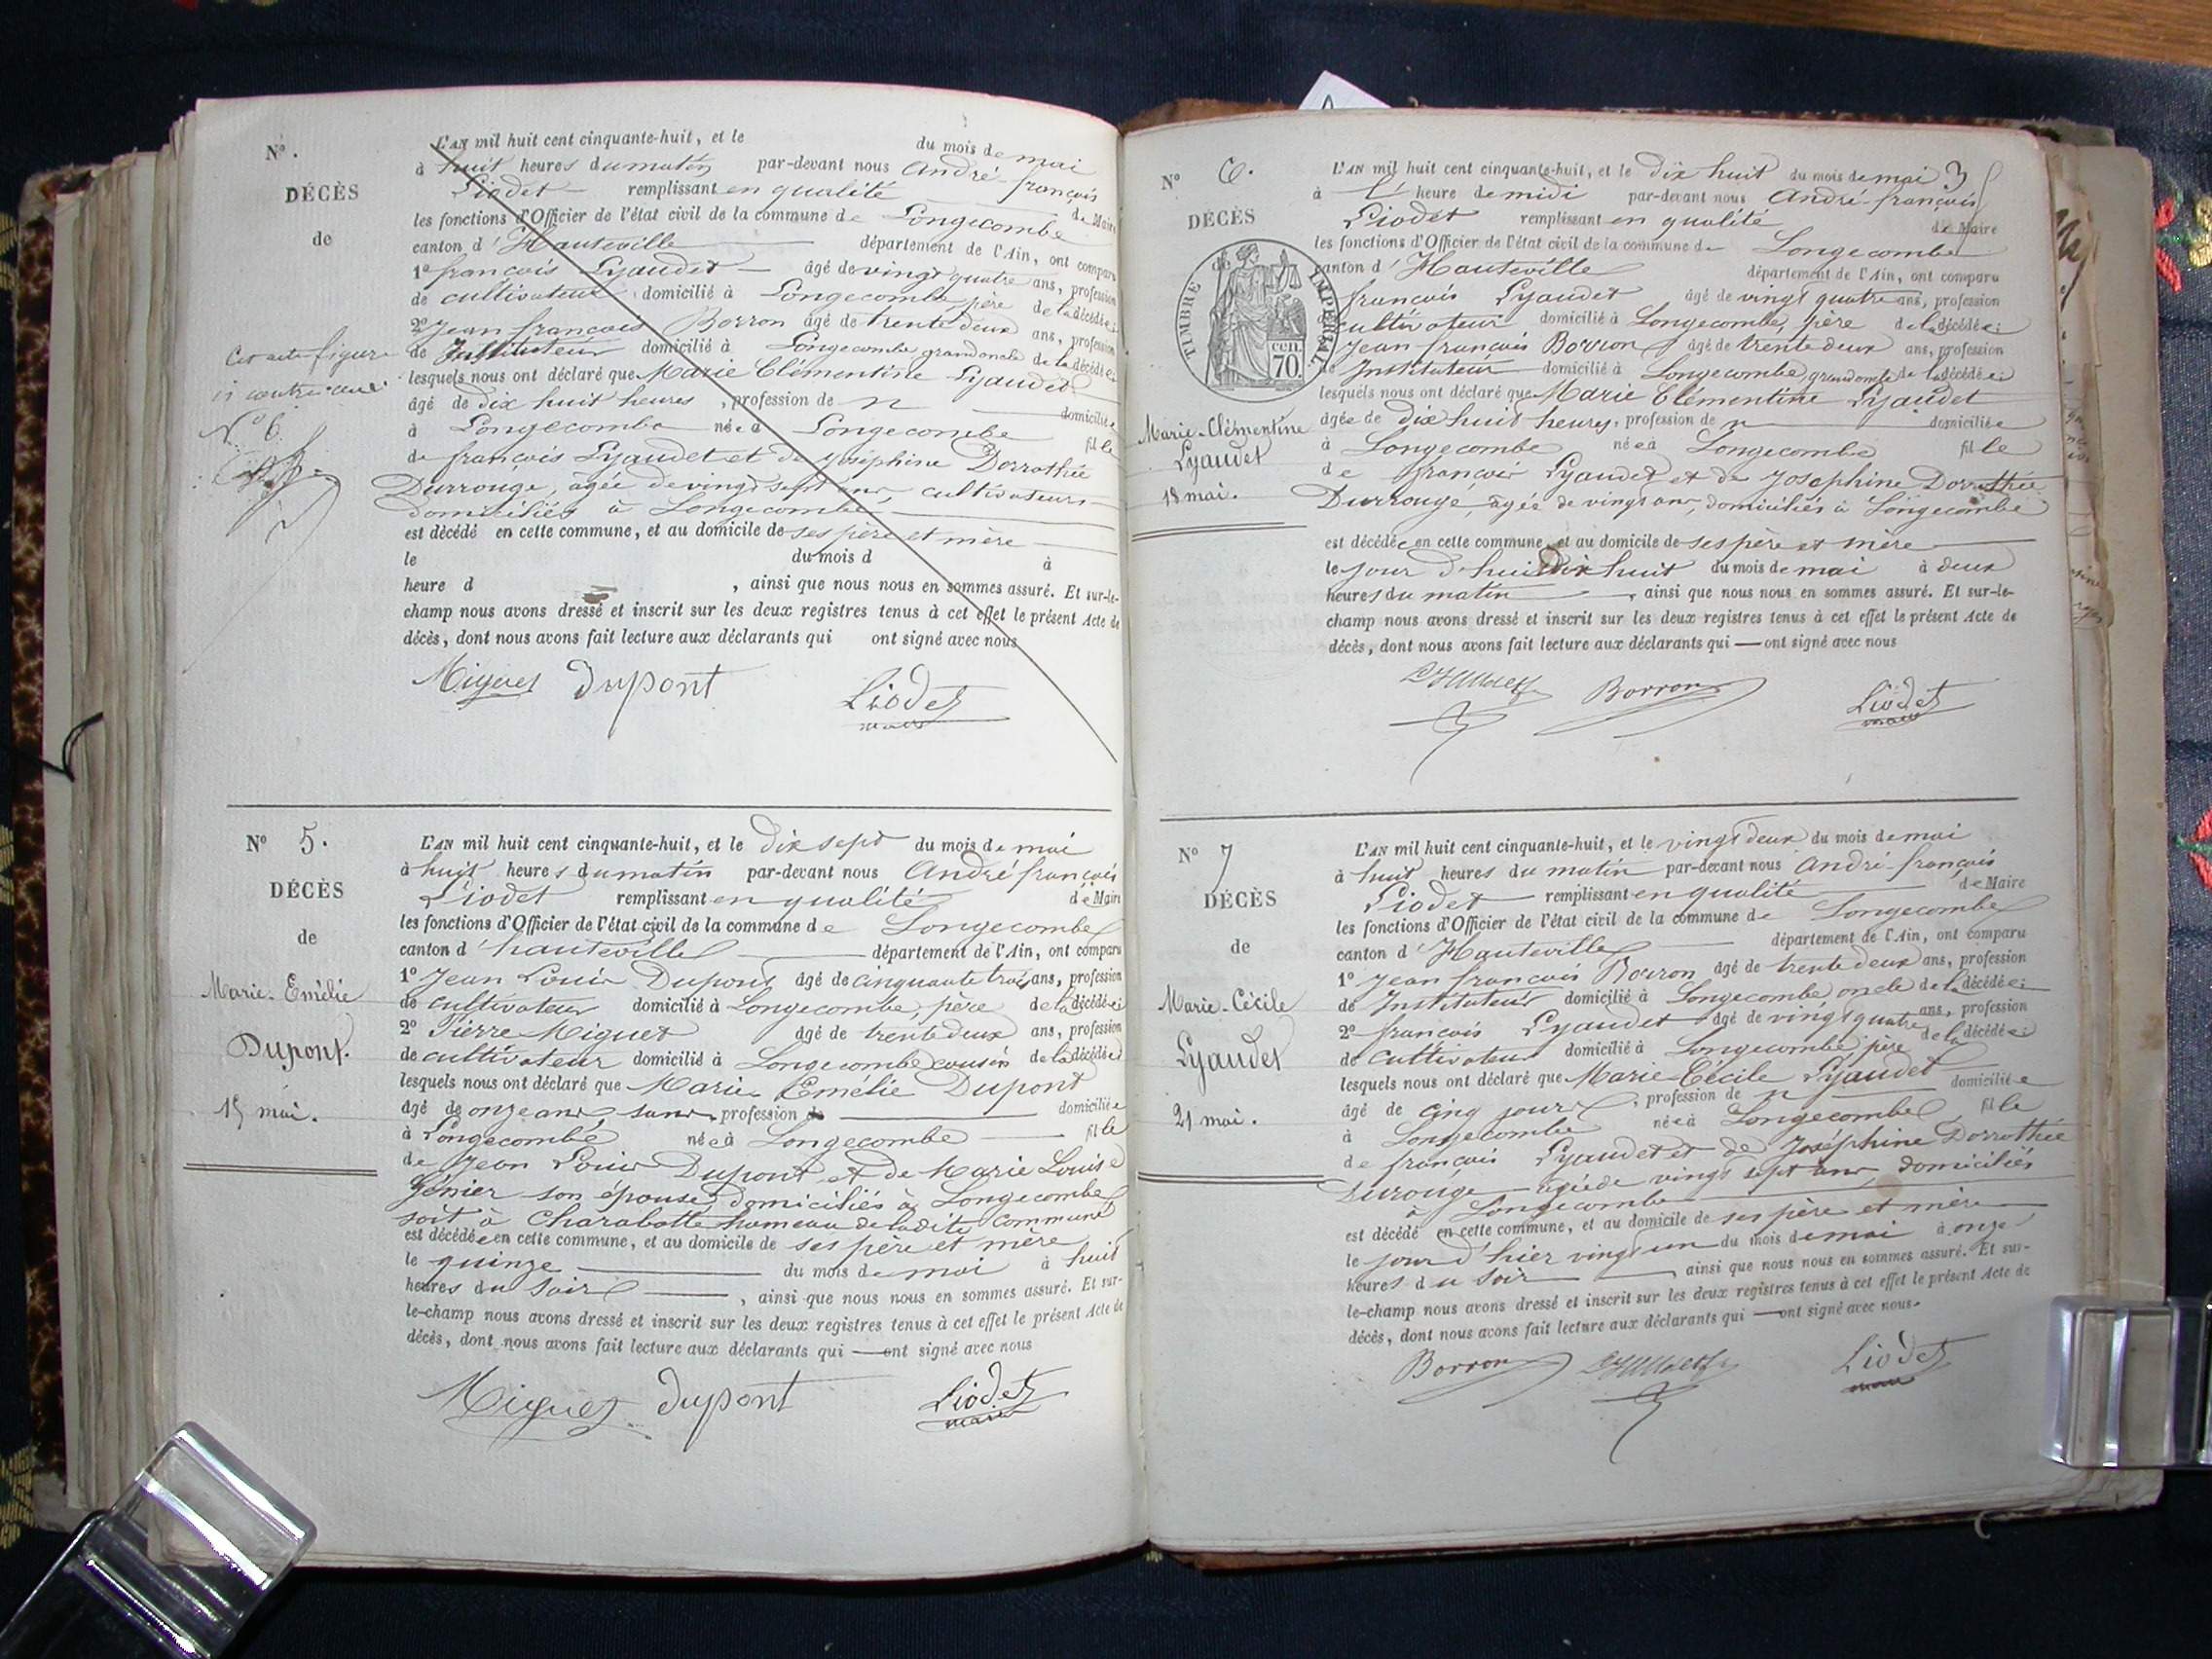 N°.
DÉCÈS
de
Cet acte figure
ci contre au
N° 6
L'AN mil huit cent cinquante-huit, et le du mois de mai
à huit heures du matin par-devant nous André françois
Liodet remplissant en qualité de Maire
les fonctions d'Officier de l'état civil de la commune de Longecombe
canton d'Hauteville département de l'Ain, ont comparu
1° françois Lyaudet âgé de vingt quatre ans, profession
de cultivateur domicilié à Longecombe, père de la décédée
2° Jean françois Borron âgé de trente deux ans, profession
de Instituteur domicilié à Longecombe grand oncle de la décédée
lesquels nous ont déclaré que Marie Clémentine Lyaudet
âgé de dix huit heures, profession de n domiciliée
à Longecombe née à Longecombe fille
de françois Lyaudet et de Joséphine Dorrothée
Durrouge, agée de vingt sept ans, cultivateurs
domiciliés à Longecombe
est décédé en cette commune, et au domicile de ses père et mère
le du mois d à
heure d , ainsi que nous nous en sommes assuré. Et sur-le-
champ nous avons dressé et inscrit sur les deux registres tenus à cet effet le présent Acte de
décès, dont nous avons fait lecture aux déclarants qui ont signé avec nous
Miguet Dupont Liodet
maire
N° 5.
DÉCÈS
de
Marie-Emélie
Dupont.
15 mai.
L'AN mil huit cent cinquante-huit, et le dix sept du mois de mai
à huit heures du matin par-devant nous André françois
Liodet remplissant en qualité de Maire
les fonctions d'Officier de l'état civil de la commune de Longecombe
canton d'hauteville département de l'Ain, ont comparu
1° Jean Louis Dupont âgé de cinquante trois ans, profession
de cultivateur domicilié à Longecombe, père de la décédée
2° Pierre Miguet âgé de trente deux ans, profession
de cultivateur domicilié à Longecombe cousin de la décédée
lesquels nous ont déclaré que Marie Emélie Dupont
âgé de onze ans, sans profession de domiciliée
à Longecombe née à Longecombe fille
de Jean Louis Dupont et de Marie Louise
Génier son épouse, domiciliés à Longecombe
soit à Charabotte hameau de ladite commune
est décédée en cette commune, et au domicile de ses père et mère
le quinze du mois de mai à huit
heures du soir , ainsi que nous nous en sommes assuré. Et sur-
le-champ nous avons dressé et inscrit sur les deux registres tenus à cet effet le présent Acte de
décès, dont nous avons fait lecture aux déclarants qui — ont signé avec nous
Miguet Dupont Liodet
maire
N° 6.
DÉCÈS
de
TIMBRE IMPÉRIAL
70 cen.
Marie-Clémentine
Lyaudet
18 mai.
L'AN mil huit cent cinquante-huit, et le dix huit du mois de mai 3
à l' heure de midi par-devant nous André-françois
Liodet remplissant en qualité de Maire
les fonctions d'Officier de l'état civil de la commune de Longecombe
canton d'Hauteville département de l'Ain, ont comparu
françois Lyaudet âgé de vingt quatre ans, profession
cultivateur domicilié à Longecombe, père de la décédée
Jean françois Borron âgé de trente deux ans, profession
de Instituteur domicilié à Longecombe, grand oncle de la décédée
lesquels nous ont déclaré que Marie Clémentine Lyaudet
âgée de dix huit heures, profession de n domiciliée
à Longecombe née à Longecombe fille
de françois Lyaudet et de Joséphine Dorrothée
Durrouge, agée de vingt ans, domiciliés à Longecombe
est décédée en cette commune, et au domicile de ses père et mère
le jour d'hui dix huit du mois de mai à deux
heures du matin , ainsi que nous nous en sommes assuré. Et sur-le-
champ nous avons dressé et inscrit sur les deux registres tenus à cet effet le présent Acte de
décès, dont nous avons fait lecture aux déclarants qui — ont signé avec nous
Borron Liodet
maire
N° 7
DÉCÈS
de
Marie-Cécile
Lyaudet
21 mai.
L'AN mil huit cent cinquante-huit, et le vingt deux du mois de mai
à huit heures du matin par-devant nous André-françois
Liodet remplissant en qualité de Maire
les fonctions d'Officier de l'état civil de la commune de Longecombe
canton d'Hauteville département de l'Ain, ont comparu
1° Jean françois Borron âgé de trente deux ans, profession
de Instituteur domicilié à Longecombe oncle de la décédée
2° françois Lyaudet âgé de vingt quatre ans, profession
de cultivateur domicilié à Longecombe père de la décédée
lesquels nous ont déclaré que Marie-Cécile Lyaudet
âgé de cinq jours, profession de n domiciliée
à Longecombe née à Longecombe fille
de françois Lyaudet et de Joséphine Dorrothée
Durouge agée de vingt sept ans, domiciliés
à Longecombe
est décédé en cette commune, et au domicile de ses père et mère
le jour d'hier vingt un du mois de mai à onze
heures du soir ainsi que nous nous en sommes assuré. Et sur-
le-champ nous avons dressé et inscrit sur les deux registres tenus à cet effet le présent Acte de
décès, dont nous avons fait lecture aux déclarants qui — ont signé avec nous.
Borron Liodet
maire